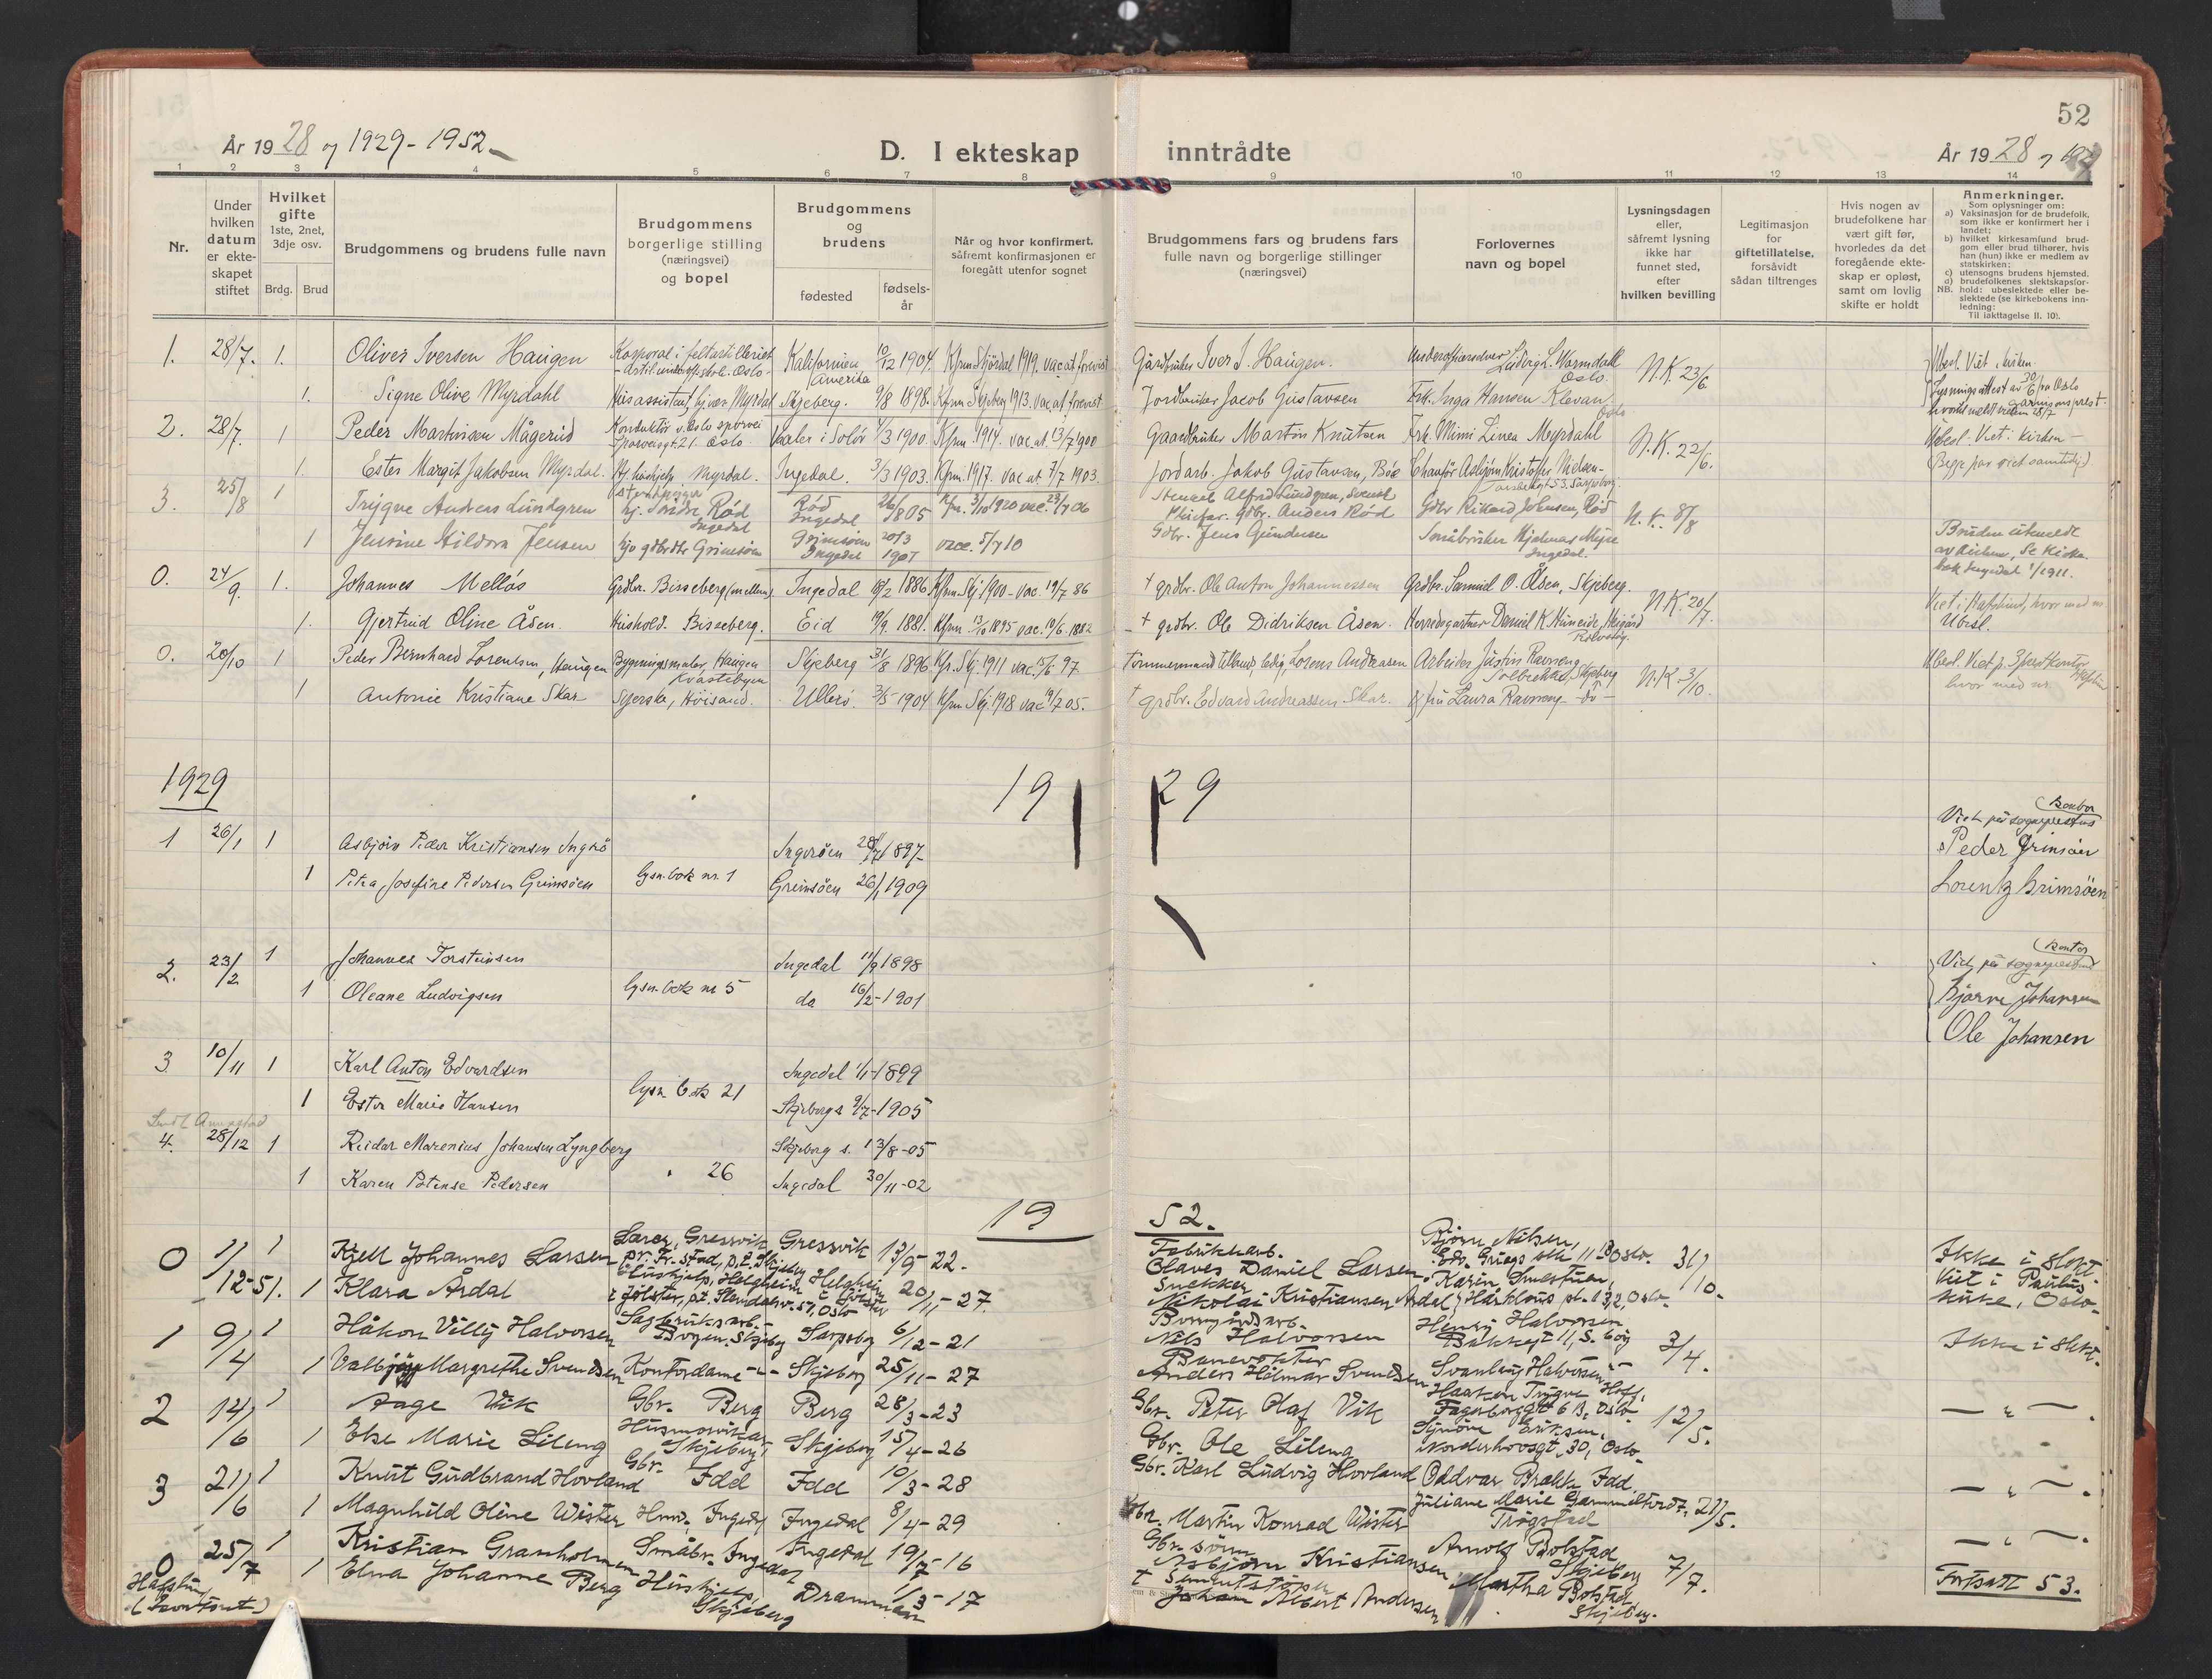 52
År 1928 og 1929-1952
D. I ekteskap inntrådte
År 1928 og 1929
1 2 3 4 5 6 7 8 9 10 11 12 13 14
Nr.
Under hvilken datum er ekteskapet stiftet
Hvilket gifte 1ste, 2net, 3dje osv.
Brdg. Brud
Brudgommens og brudens fulle navn
Brudgommens borgerlige stilling (næringsvei) og bopel
Brudgommens og brudens
fødested
fødselsår
Når og hvor konfirmert, såfremt konfirmasjonen er foregått utenfor sognet
Brudgommens fars og brudens fars fulle navn og borgerlige stillinger (næringsvei)
Forlovernes navn og bopel
Lysningsdagen eller, såfremt lysning ikke har funnet sted, efter hvilken bevilling
Legitimasjon for giftetillatelse, forsåvidt sådan tiltrenges
Hvis nogen av brudefolkene har vært gift før, hvorledes da det foregående ekteskap er opløst, samt om lovlig skifte er holdt
Anmerkninger.
Som oplysninger om:
a) Vaksinasjon for de brudefolk, som ikke er konfirmert her i landet;
b) hvilket kirkesamfund brudgom eller brud tilhører, hvis han (hun) ikke er medlem av statskirken;
c) utensogns brudens hjemsted.
d) brudefolkenes slektskapsforhold: ubeslektede eller beslektede (se kirkebokens innledning:
NB.
Til iakttagelse II. 10).
1. 28/7. 1. Oliver Iversen Haugen Korporal i feltartilleriet Kalifornien Amerika 10/12 1904. Kfm Skjördal 1919. vac.at. forevist Gårdbruker Iver J. Haugen. Ludvig L. Warmdahl Oslo N.K. 23/6 Ubesl. Viet i kirken
1. Signe Olive Myrdahl Skjeberg. 9/8 1898. Kfm Skjeberg 1913. Vac.at forevist Jordbruker Jacob Gustavsen Frk. Inga Hansen Klevan Oslo
2. 28/7. 1 Peder Martinsen Mågerud Konduktör v. Oslo sporvei Oslo Vaaler i Solör 4/3 1900. Kfm. 1914. vac.at. 13/7 1900 Gaardbruker Martin Knutsen Frk. Mimi Linea Myrdahl N.K. 22/6. Ubesl. Viet i kirken
1. Ester Margit Jakobsen Myrdal. Myrdal. Ingedal. 3/3 1903. Kfm. 1917. vac at. 7/7 1903 Jordarb. Jakob Gustavsen, Böe Chauför Asbjörn Kristofer Nielsen
3. 25/8 1 Trygve Anders Lundgren Rød Ingedal Rød Ingedal 26/8 05 Kfm. 3/10 1920 vac. Alfred Lundgren, Anders Rød Gdbr Rikard Johnsen, Rød N.K. 8/8
1 Jensine Hildora Jensen Grimsöen Grimsöen Ingedal 20/3 1907 vacc. 5/7 10 Gdbr. Jens Gundersen Småbruker Hjalmar Ingedal. Bruden utmeldt av kirken, Se kirkebok Ingedal 1/1911.
0. 24/9. 1. Johannes Mellös Grdbr. Bisseberg (mellem) Ingedal 18/2 1886 Kfm. Skj. 1900 - Vac. 19/7 86 † grdbr. Ole Anton Johannessen Grdbr. Samuel O. Ölsen, Skjeberg. N.K. 20/7. Viet i Hafslund, hvor med nr.
1. Gjertrud Oline Åsen. Hushold. Bisseberg. Eid 19/9. 1881. Kfm. 13/10 1895 vac. 19/6. 1882 † grdbr. Ole Didriksen Åsen. Herredsgartner Daniel K. Ubesl.
0. 20/10 1 Peder Bernhard Lorentsen, Haugen Bygningsmaler, Haugen Kvastebyen Skjeberg 31/8 1896 Kf. Skj. 1911 vac. 15/6 97. Lorens Andreasen Arbeider Justin Ravneng Solbakken, Skjeberg N.K. 3/10. Ubesl. Viet p. Sprestkontor, Hafslund hvor med nr.
1 Antonie Kristiane Skar Syerske, Höisand. Ullerö. 3/5 1904 Kfm Skj. 1918 vac 19/7 05. † grdbr. Edvard Andreassen Skar. fru Laura Ravneng -do-
1929
19 29
1 26/1 1 Asbjörn Peder Kristiansen Ingerö Ingeröen 1897 Viet på sogneprestens kontor
1 Petra Josefine Pedersen Grimsöen lysn.bok nr. 1 Grimsöen 26/1 1909 Peder Grimsöen
Lorentz Grimsöen
2. 23/2 1 Johannes Torsteinsen Ingedal 11/9 1898 Viet på sogneprestens kontor
1 Oleane Ludvigsen lysn.bok nr 5 do 16/2-1901 Bjarne Johansen
Ole Johansen
3 10/11 1 Karl Anton Edvardsen Ingedal 1/1-1899
1 Ester Marie Hansen lysn bok 21 Skjebergs 9/7-1905
4. 28/12 1 Reidar Marenius Johansen Lyngberg Skjeberg s. 13/8-05
1 Karen Petense Pedersen " 26 Ingedal 30/11-02
19 52.
0 1/12-51. 1 Kjell Johannes Larsen Lærer, Gressvik pr. Fr.stad, p.t. Skjeberg Gressvik 13/9-22. Fabrikkarb. Olaves Daniel Larsen Bjørn Nilsen, Edv. Griegs alle 11 B Oslo. 31/10. Ikke i slekt.
1 Klara Årdal Hushjelp, Helgheim i Jølster, p.t. Slemdalsv. 57, Oslo Helgheim i Jølster 20/11-27. Snekker Nikolai Kristiansen Årdal Karin Oslo Viet i Paulus kirke, Oslo.
1 9/4 1 Håkon Villy Halvorsen Sagbruksarb. Borgen, Skjeberg Sarpsborg 6/12-21 Nils Halvorsen Henry Halvorsen Bakkegt 11, S.borg 3/4. Ikke i slekt.
1 Valbjørg Margrethe Svendsen Kontordame -"- Skjeberg 25/11-27 Banevokter Anders Hilmar Svendsen Svanhug Halvorsen -"-
2 14/6 1 Aage Vik Gbr. Berg Berg 28/3-23 Gbr. Peter Olaf Vik Haakon Trygve Hoff, Fagerborggt 6 B, Oslo 12/5. - " -.
1 Else Marie Lileng Husmorvikar Skjeberg Skjeberg 15/4-26 Gbr. Ole Lileng Synøve Eriksen, Norderhovsgt, 30, Oslo
3 21/6 1 Knut Gudbrand Hovland Gbr. Idd Idd 10/3-28 Gbr. Karl Ludvig Hovland Oddvar Brekke Idd. 21/5. - " -.
1 Magnhild Oline Wister Ingedal Ingedal 8/4-29 Gbr. Martin Konrad Wister Juliane Marie Trøgstad
0 25/7 1 Kristian Granholmen Småbr. Ingedal Ingedal 19/7-16 Gbr. sønn Asbjørn Kristiansen Arnold Bolstad Skjeberg 7/7. - " -.
Hafslund (kontoret) 1 Elna Johanne Berg Hushjelp Skjeberg Drammen 1/3-17 † Sementstøper Johan Albert Andersen Martha Bolstad Skjeberg. Fortsatt 53.